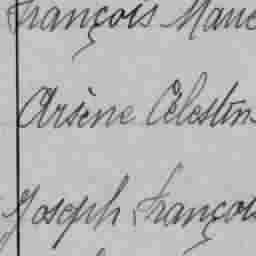 François Marie
Arsène Célestin
Joseph François